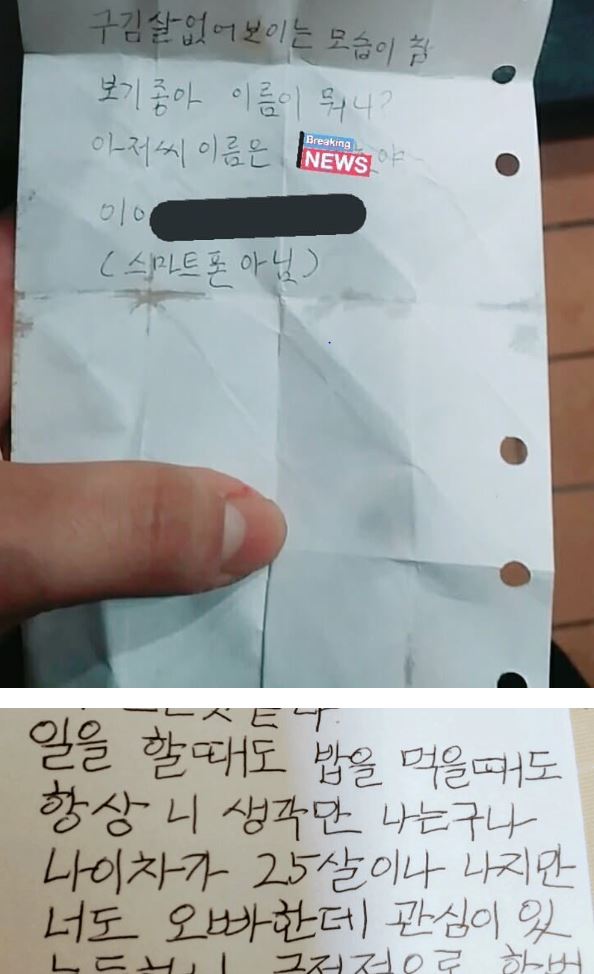 구김살없어보이는 모습이 참
보기좋아 이름이 뭐니?
아저씨 이름은 Breaking NEWS 야
010
(스마트폰 아님)
일을 할때도 밥을 먹을때도
항상 니 생각만 나는구나
나이차가 25살이나 나지만
너도 오빠한테 관심이 있
긍정적으로 한번